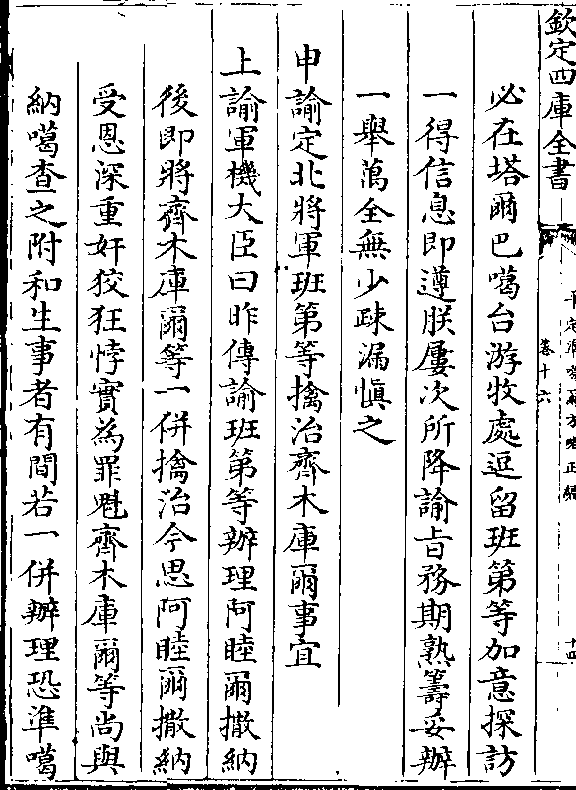 欽定四庫全書
平定準噶爾方略正編
卷十六
十四
必在塔爾巴噶台游牧處逗留班第等加意探訪
一得信息即遵朕屢次所降諭旨務期熟籌妥辦
一舉萬全無少疎漏慎之
申諭定北將軍班第等擒治齊木庫爾事宜
上諭軍機大臣曰昨傳諭班第等辦理阿睦爾撒納
後即將齊木庫爾等一併擒治今思阿睦爾撒納
受恩深重奸狡狂悖實為罪魁齊木庫爾等尚與
納噶查之附和生事者有間若一併辦理恐準噶